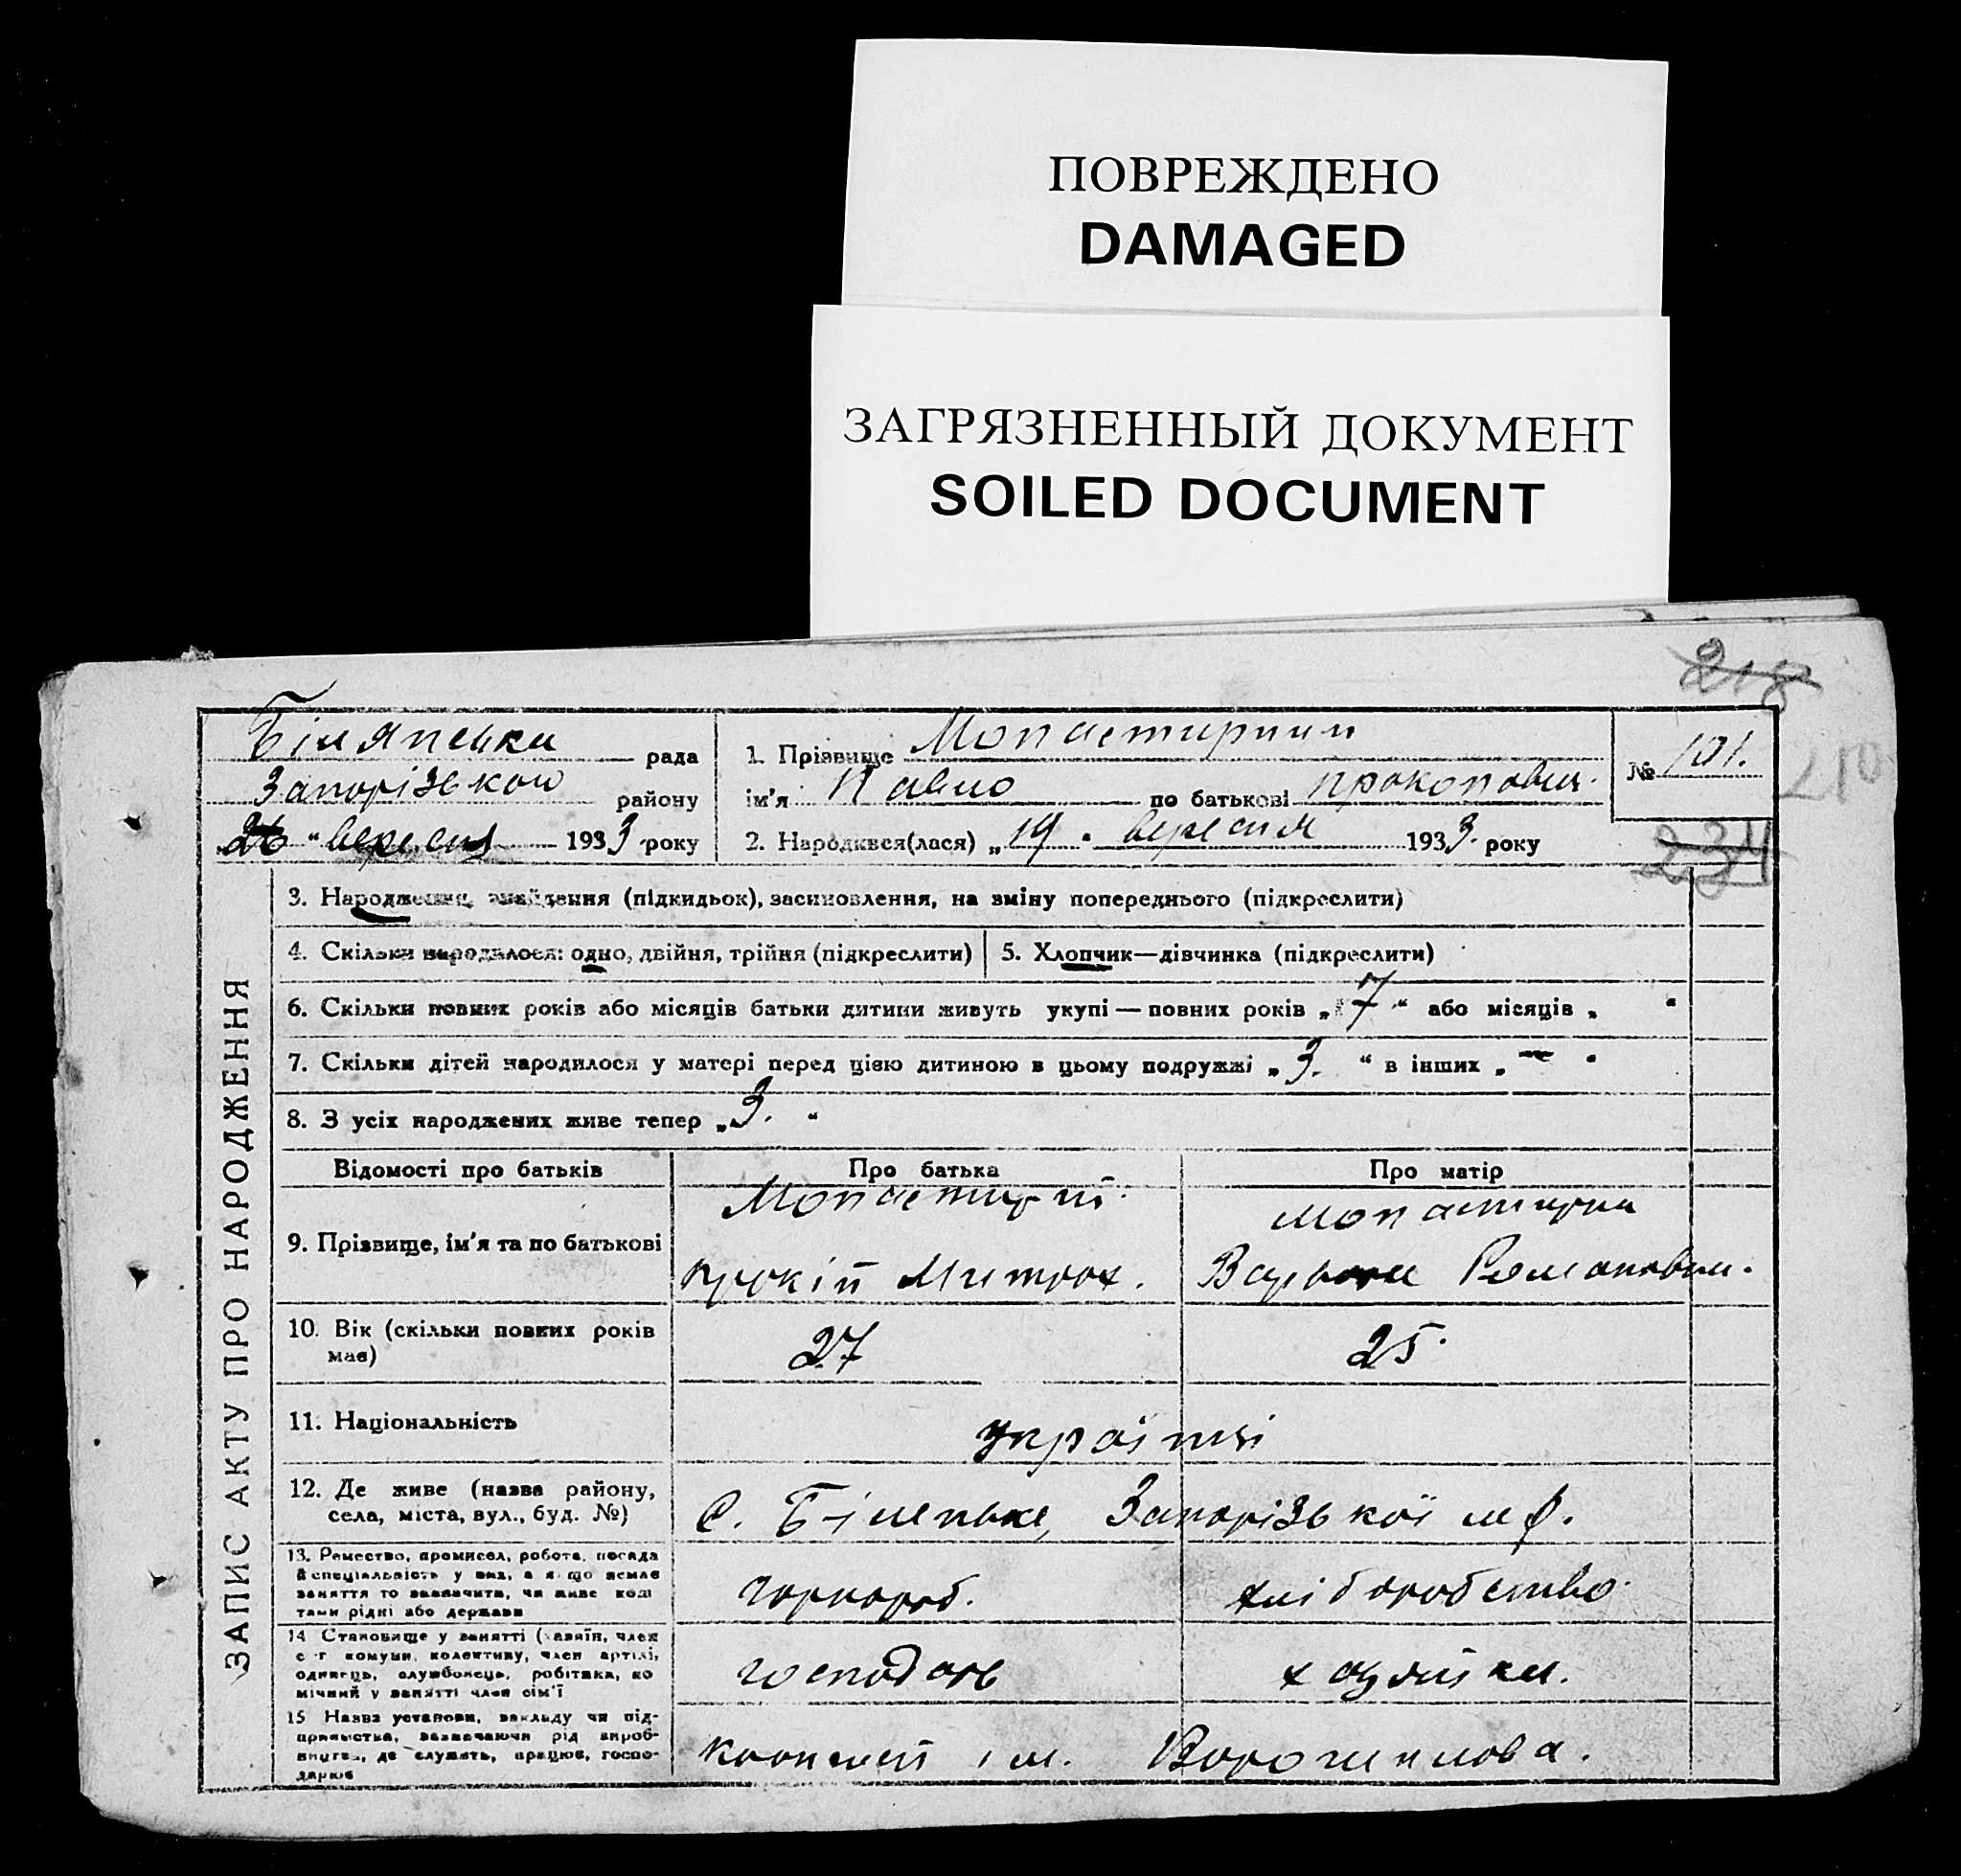 ПОВРЕЖДЕНО
DAMAGED
ЗАГРЯЗНЕННЫЙ ДОКУМЕНТ
SOILED DOCUMENT
218
рада
1. Прізвище
№ 101.
210
Запорізькой району
ім'я Павло по батькові Прокопович.
26 " вересня 1933 року
2. Народився(лася) „19 " вересня 1933. року
234
ЗАПИС АКТУ ПРО НАРОДЖЕННЯ
3. Народження, знайдення (підкидьок), засиновлення, на зміну попереднього (підкреслити)
4. Скільки народилося: одно, двійня, трійня (підкреслити)
5. Хлопчик—дівчинка (підкреслити)
6. Скільки повних років або місяців батьки дитини живуть укупі — повних років „7" або місяців „ "
7. Скільки дітей народилося у матері перед цією дитиною в цьому подружжі „3. " в інших „— "
8. З усіх народжених живе тепер „3. "
Відомості про батьків
Про батька
Про матір
9. Прізвище, ім'я та по батькові
Прокіп Митроф.
10. Вік (скільки повних років
має)
27
25.
11. Національність
українці
12. Де живе (назва району,
села, міста, вул., буд. №)
С. Біленьке, Запорізької
13. Ремество, промисел, робота, посада
й спеціальність у них, а якщо немає
заняття то зазначити, чи живе кош
тами рідні або держави
чорнороб.
хліборобство.
14 Становище у занятті (хазяїн, член
с-г комуни, колективу, член артілі,
одинець, службовець, робітник, по
мічний у занятті член сім'ї
господарь
хазяйка.
15 Назва установи, закладу чи під-
приємства, зазначаючи рід вироб-
ництва, де служить, працює, госпо-
дарює
ім. Ворошилова.